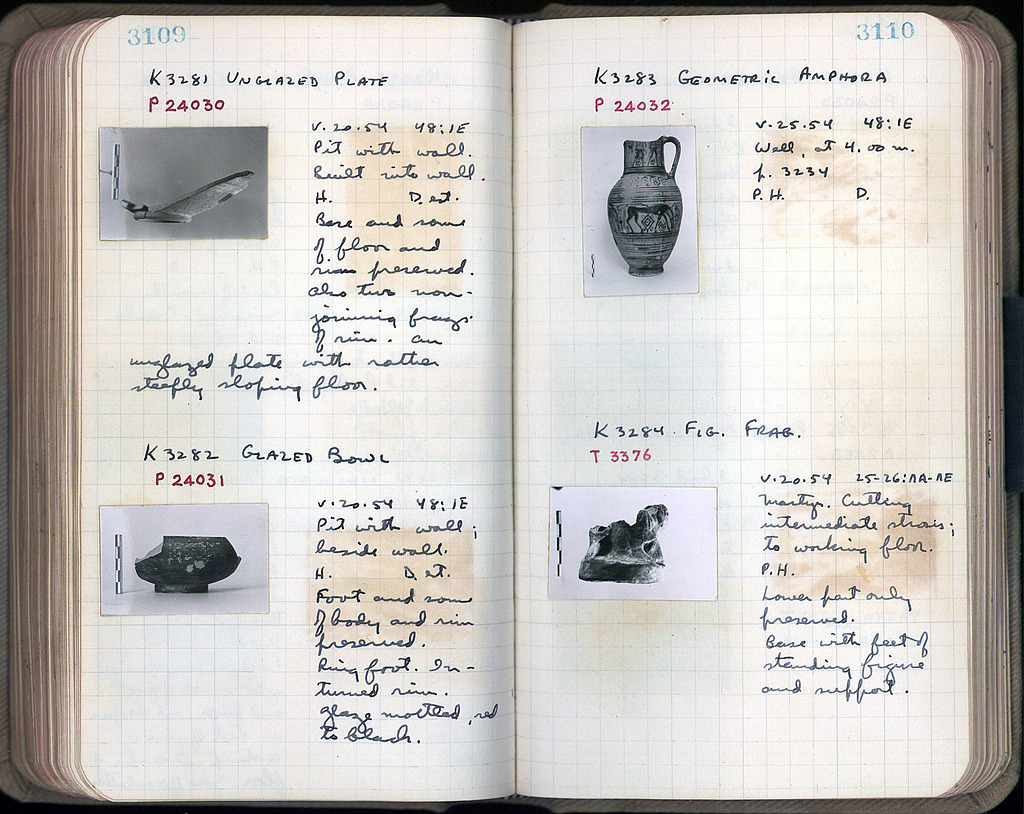 3109
K 3281 UNGLAZED PLATE
P 24030
V.20.54 48:ΙΕ
Pit with wall.
Built into wall.
H. D. est.
Base and some
of floor and
rim preserved.
Also two non-
joining frags.
of rim. An
unglazed plate with rather
steeply sloping floor.
K 3282 GLAZED BOWL
P 24031
V.20.54 48:ΙΕ
Pit with wall;
beside wall.
H. D. est.
Foot and some
of body and rim
preserved.
Ring foot. In-
turned rim.
Glaze mottled, red
to black.
3110
K 3283 GEOMETRIC AMPHORA
P 24032
V.25.54 48:ΙΕ
Well, at 4.00 m.
p. 3234
P.H. D.
K 3284 FIG. FRAG.
T 3376
V.20.54 25-26:ΛΑ-ΛΕ
Martyr. Cutting
intermediate strosis;
to working floor.
P.H.
Lower part only
preserved.
Base with feet of
standing figure
and support.